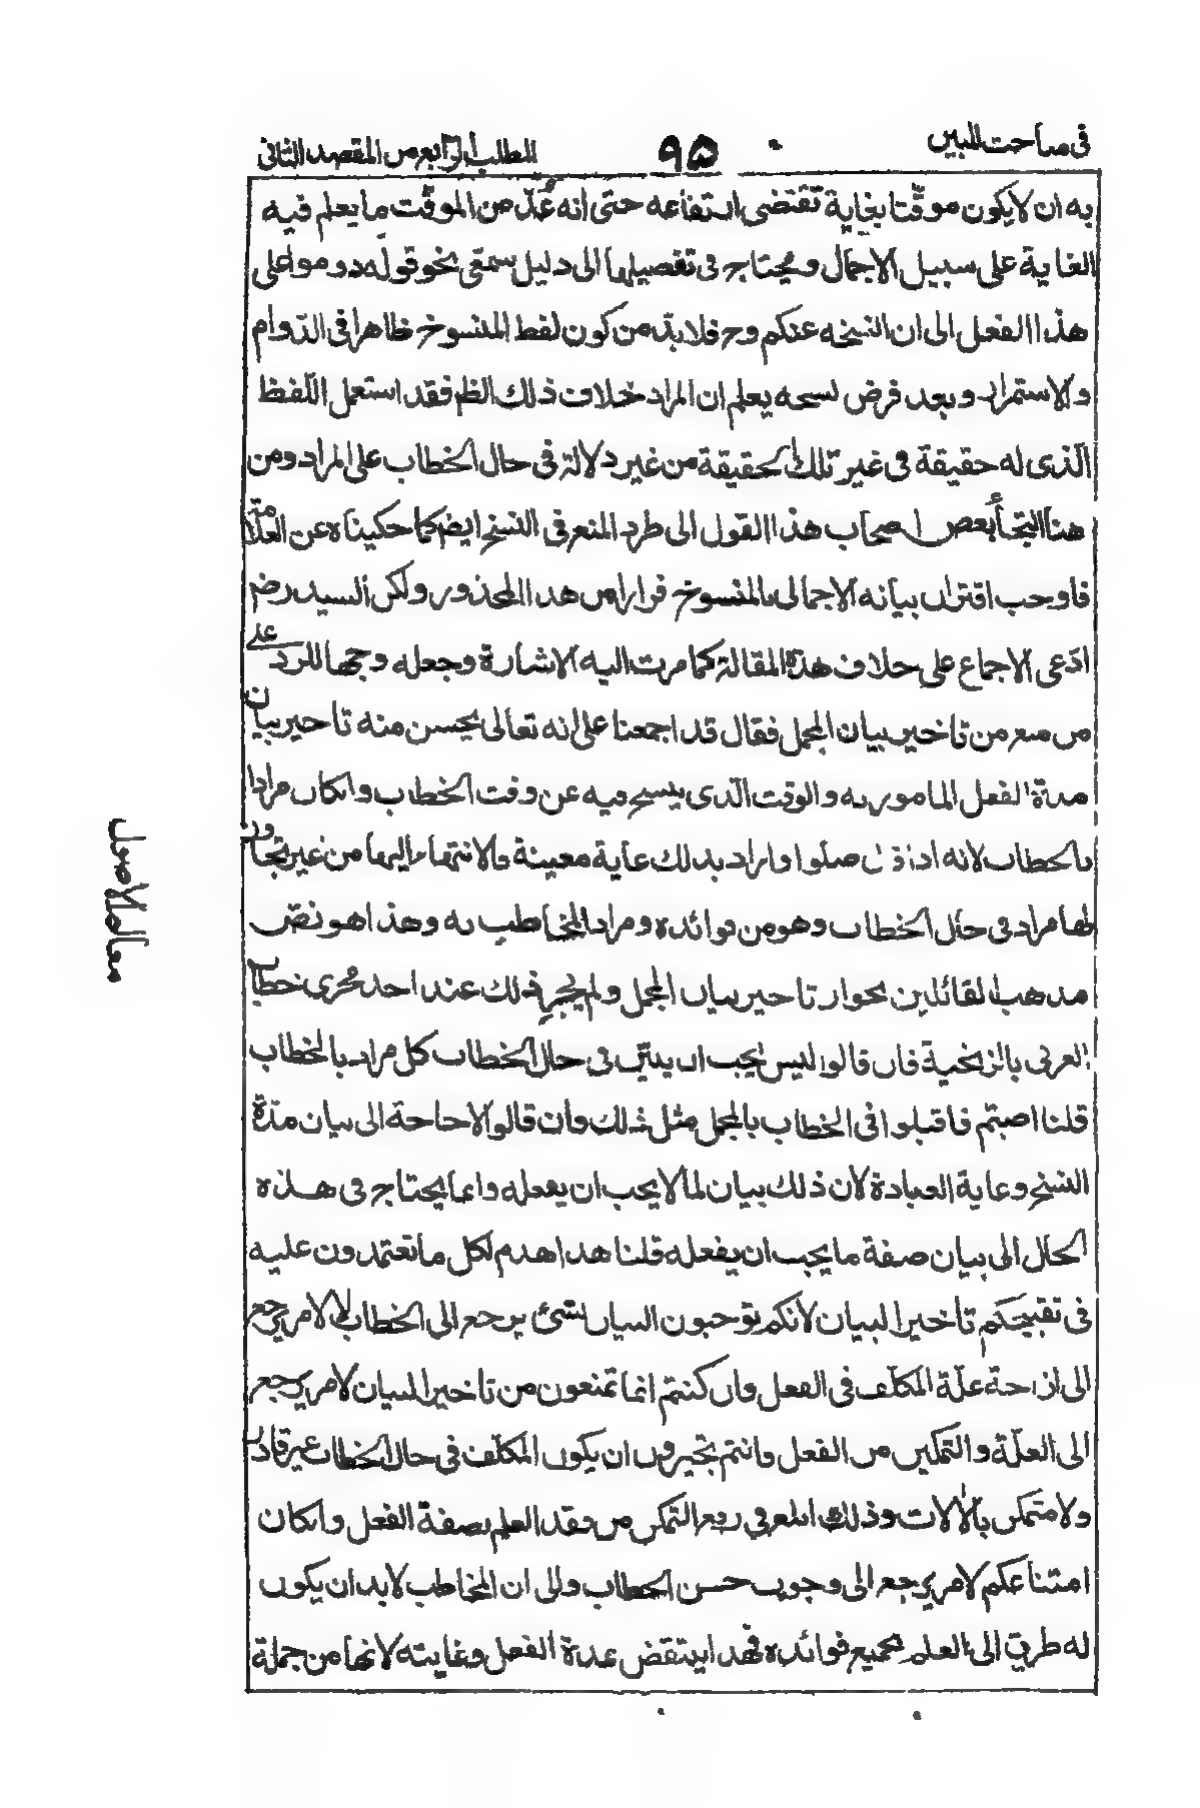 فى مباحث المبين
٩٥
المطلب الرابع من المقصد الثانى
به ان لا يكون موقّتا بغاية تقتضى ارتفاعه حتى انه عُدّ من الموقّت ما يعلم فيه
الغاية على سبيل الاجمال ويحتاج فى تفصيلها الى دليل سمعى نحو قوله دوموا على
هذا الفعل الى ان انسخه عنكم وح فلا بدّ من كون لفظ المنسوخ ظاهرا فى الدّوام
والاستمرار وبعد فرض نسخه يعلم ان المراد خلاف ذلك الظم فقد استعمل اللّفظ
الّذى له حقيقة فى غير تلك الحقيقة من غير دلالة فى حال الخطاب على المراد ومن
هنا التجأ بعض اصحاب هذا القول الى طرد المنع فى النسخ ايضا كما حكيناه عن العلّامة
فاوجب اقتران بيانه الاجمالى بالمنسوخ فرارا من هذا المحذور ولكن السيد رض
ادّعى الاجماع على خلاف هذه المقالة كما مرت اليه الاشارة وجعله وجها للرد على
من منع من تاخير بيان المجمل فقال قد اجمعنا على انه تعالى يحسن منه تاخير بيان
مدة الفعل المامور به والوقت الّذى ينسخ فيه عن وقت الخطاب وان كان مرادا
بالخطاب لانه اذا قال صلوا واراد بذلك غاية معينة فالانتهاء اليها من غير تجاوز
لها مراد فى حال الخطاب وهو من فوائده ومراد المخاطب به وهذا هو نصّ
مذهب القائلين بجواز تاخير بيان المجمل ولم يجر ذلك عند احد مجرى خطاب
العربى بالزنجية فان قالوا ليس يجب ان يبيّن فى حال الخطاب كل مراد بالخطاب
قلنا اصبتم فاقبلوا فى الخطاب بالمجمل مثل ذلك وان قالوا لا حاجة الى بيان مدّة
النسخ وغاية العبادة لان ذلك بيان لما لا يجب ان يفعله وانما يحتاج فى هذه
الحال الى بيان صفة ما يجب ان يفعله قلنا هذا هدم لكل ما تعتمدون عليه
فى تقبيحكم تاخير البيان لانكم توجبون البيان لشئ يرجع الى الخطاب لا لامر يرجع
الى ازاحة علّة المكلّف فى الفعل وان كنتم انما تمنعون من تاخير البيان لامر يرجع
الى العلّة والتمكين من الفعل وانتم تجيزون ان يكون المكلّف فى حال الخطاب غير قادر
ولا متمكن بالآلات وذلك ابلغ فى رفع التمكن من فقد العلم بصفة الفعل وان كان
امتناعكم لامر يرجع الى وجوب حسن الخطاب والى ان المخاطب لابد ان يكون
له طريق الى العلم بجميع فوائده فهذا ينتقض بمدة الفعل وغايته لانها من جملة
معالم الاصول